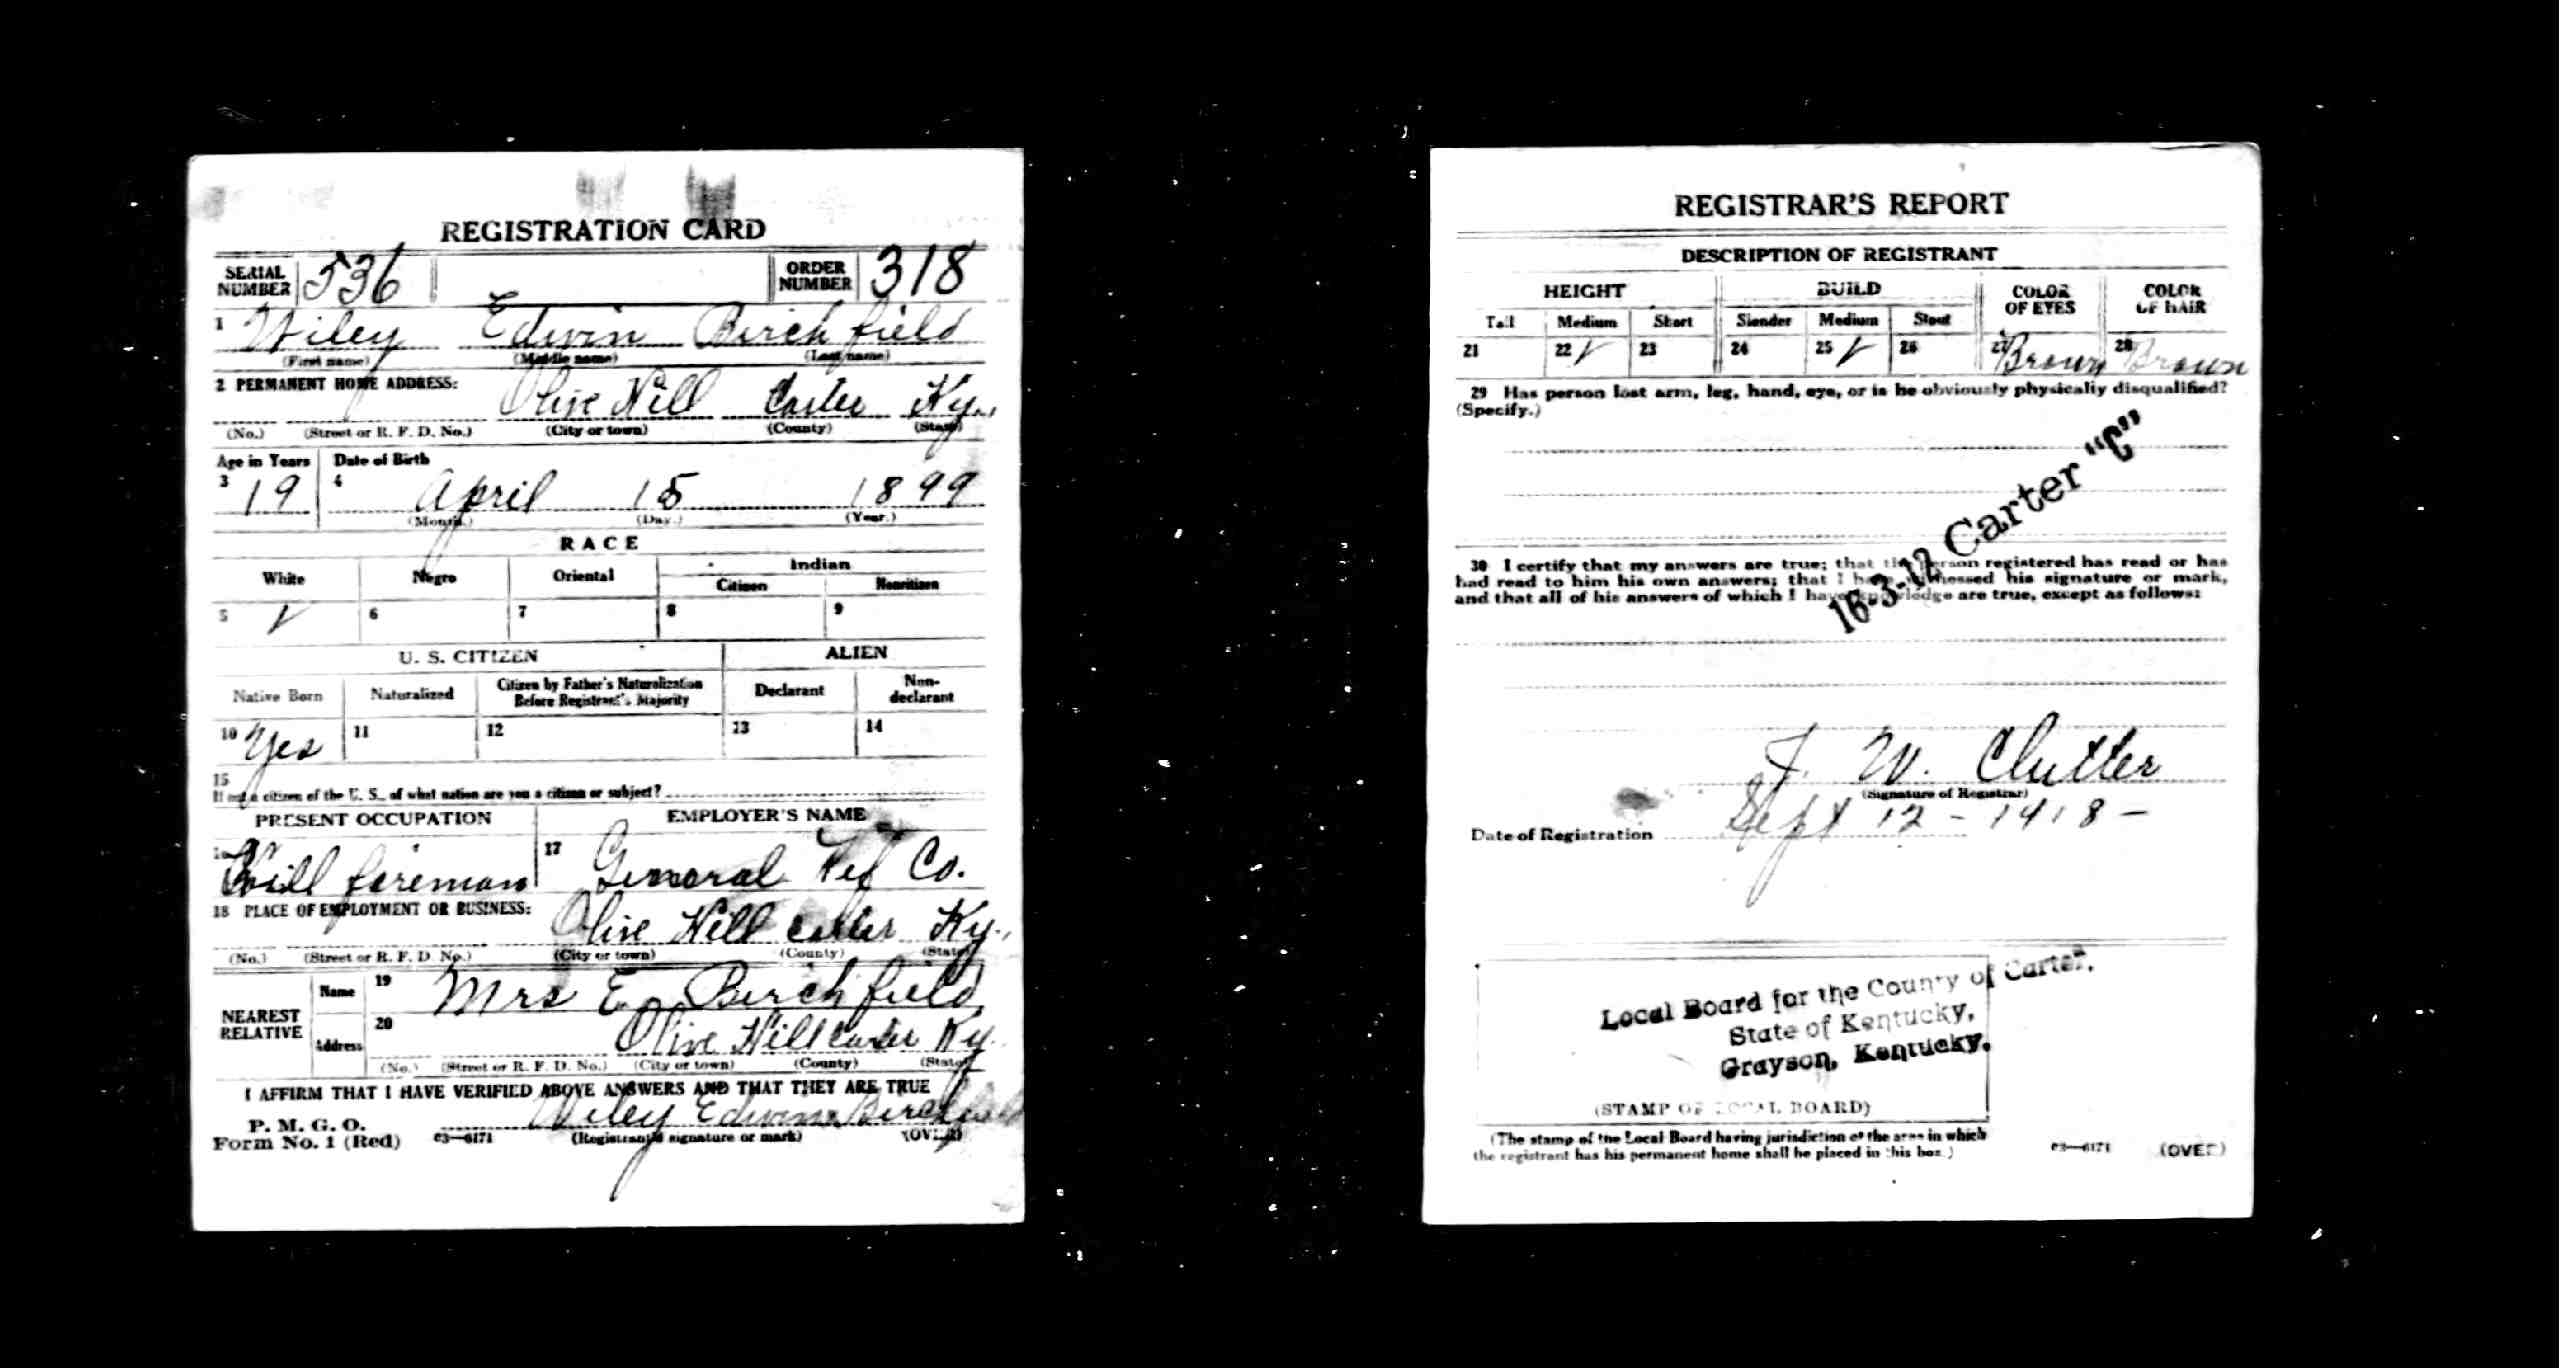 REGISTRATION CARD
SERIAL NUMBER 536 ORDER NUMBER 318
1 Wiley Edwin Birchfield
(First name) (Middle name) (Last name)
2 PERMANENT HOME ADDRESS:
Olive Hill Carter Ky.
(No.) (Street or R. F. D. No.) (City or town) (County) (State)
Age in Years Date of Birth
3 19 4 April 15 1899
(Month.) (Day.) (Year.)
RACE
White Negro Oriental Indian
Citizen Noncitizen
5 √ 6 7 8 9
U. S. CITIZEN ALIEN
Native Born Naturalized Citizen by Father's Naturalization Before Registrant's Majority Declarant Non-declarant
10 Yes 11 12 13 14
15
If not a citizen of the U. S., of what nation are you a citizen or subject?
PRESENT OCCUPATION EMPLOYER'S NAME
16 foreman 17 General Ref Co.
18 PLACE OF EMPLOYMENT OR BUSINESS:
Olive Hill Carter Ky.
(No.) (Street or R. F. D. No.) (City or town) (County) (State)
NEAREST RELATIVE Name 19 Mrs E. Birchfield
Address 20 Olive Hill Carter Ky.
(No.) (Street or R. F. D. No.) (City or town) (County) (State)
I AFFIRM THAT I HAVE VERIFIED ABOVE ANSWERS AND THAT THEY ARE TRUE
P. M. G. O.
Form No. 1 (Red) 03—6171 Wiley Edwin Birchfield
(Registrant's signature or mark) (OVER)
REGISTRAR'S REPORT
DESCRIPTION OF REGISTRANT
HEIGHT BUILD COLOR OF EYES COLOR OF HAIR
Tall Medium Short Slender Medium Stout
21 22 √ 23 24 25 √ 26 27 Brown 28 Brown
29 Has person lost arm, leg, hand, eye, or is he obviously physically disqualified?
(Specify.)
16-3-12 Carter "C"
30 I certify that my answers are true; that the person registered has read or has
had read to him his own answers; that I have witnessed his signature or mark,
and that all of his answers of which I have knowledge are true, except as follows:
J. W. Clutter
(Signature of Registrar)
Date of Registration Sept 12 - 1918 -
Local Board for the County of Carter,
State of Kentucky,
Grayson, Kentucky.
(STAMP OF LOCAL BOARD)
(The stamp of the Local Board having jurisdiction of the area in which
the registrant has his permanent home shall be placed in this box.)
03—6171 (OVER)